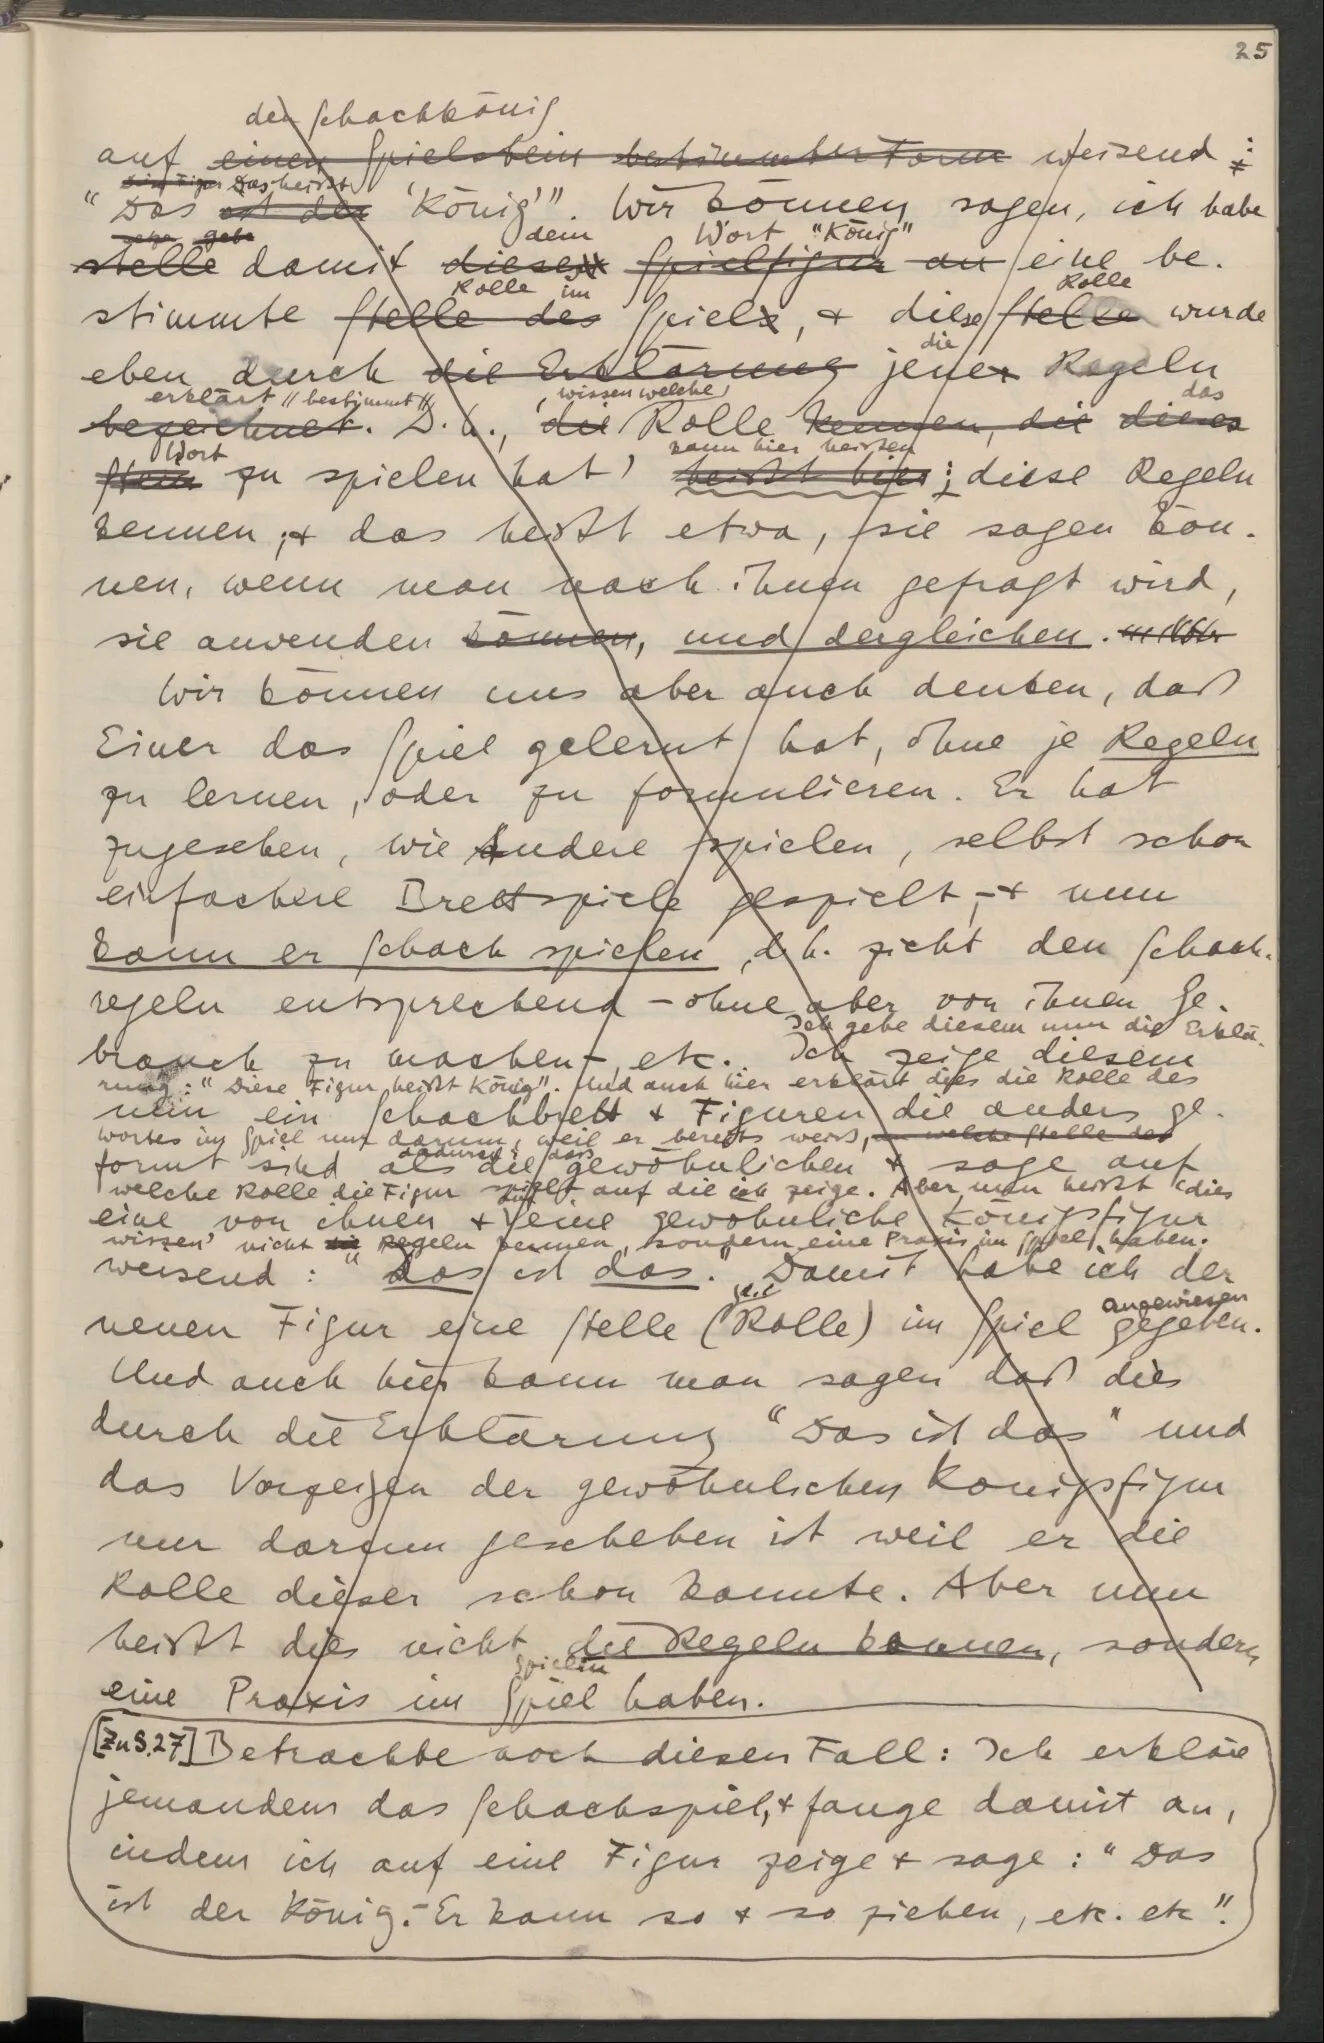 25
den Schachkönig
auf einen Spielstein bestimmter Form weisend:
eine Figur Das heißt
"Das ist der 'König'". Wir können sagen, ich habe
gebe dem Wort "König"
stelle damit diese Spielfigur an eine be-
Rolle im Rolle
stimmte Stelle des Spiels, & diese Stelle wurde
die
eben durch die Erklärung jener Regeln
erklärt // bestimmt // , wissen welche das
bezeichnet. D.h., 'die Rolle kennen, die dieses
Wort kann hier heißen
Stein zu spielen hat' heißt hier: diese Regeln
kennen; & das heißt etwa, sie sagen kön-
nen, wenn man nach ihnen gefragt wird,
sie anwenden können, und dergleichen.
Wir können uns aber auch denken, daß
Einer das Spiel gelernt hat, ohne je Regeln
zu lernen, oder zu formulieren. Er hat
zugesehen, wie Andere spielen, selbst schon
einfachere Brettspiele gespielt, – & nun
kann er Schach spielen, d.h. zieht den Schach-
regeln entsprechend – ohne aber von ihnen Ge-
Ich gebe diesem nun die Erklä-
brauch zu machen –, etc. Ich zeige diesem
rung: "Diese Figur heißt König". Und auch hier erklärt dies die Rolle des
nun ein Schachbrett & Figuren die anders ge-
Wortes im Spiel nur darum, weil er bereits weiß, in welche Stelle der
dadurch, daß
formt sind als die gewöhnlichen & sage auf
welche Rolle die Figur spielt auf die ich zeige. Aber nun heißt 'dies
eine von ihnen & auf eine gewöhnliche Königsfigur
wissen' nicht die Regeln kennen, sondern eine Praxis im Spiel haben.
weisend: "das ist das." Damit habe ich der
angewiesen
neuen Figur eine Stelle (Rolle) im Spiel gegeben.
Und auch hier kann man sagen daß dies
durch die Erklärung "Das ist das" und
das Vorzeigen der gewöhnlichen Königsfigur
nur darum geschehen ist weil er die
Rolle dieser schon kannte. Aber nun
heißt dies nicht die Regeln kennen, sondern
Spielen
eine Praxis im Spiel haben.
[Zu S.27] Betrachte noch diesen Fall: Ich erkläre
jemandem das Schachspiel, & fange damit an,
indem ich auf eine Figur zeige & sage: "Das
ist der König. – Er kann so & so ziehen, etc. etc".